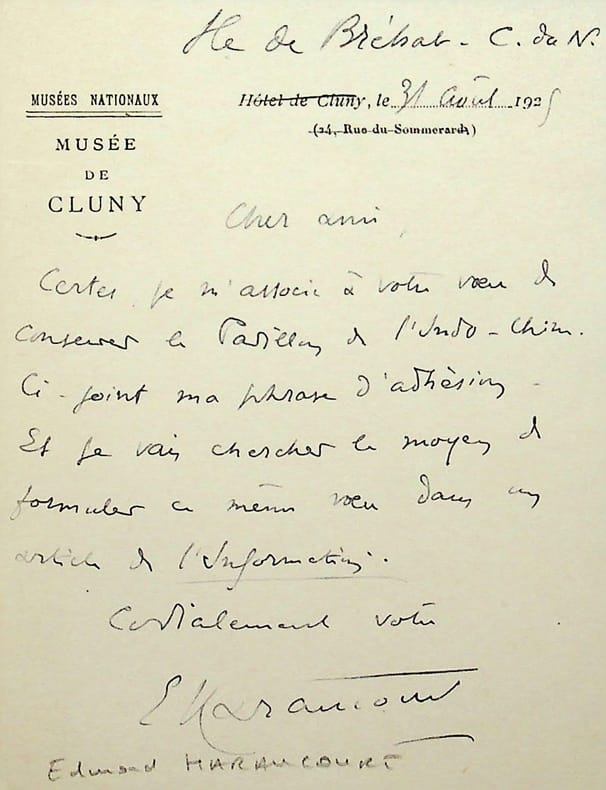 Ile de Bréhat - C. du N.
MUSÉES NATIONAUX
MUSÉE
DE
CLUNY
Hôtel de Cluny, le 31 août 1925
(24, Rue du Sommerard)
Cher ami,
Certes je m'associe à votre vœu de
conserver le Pavillon de l'Indo-Chine.
Ci-joint ma phrase d'adhésion -
Et je vais chercher le moyen de
formuler ce même vœu dans un
article de l'Information.
Cordialement votre
E Haraucourt
Edmond HARAUCOURT